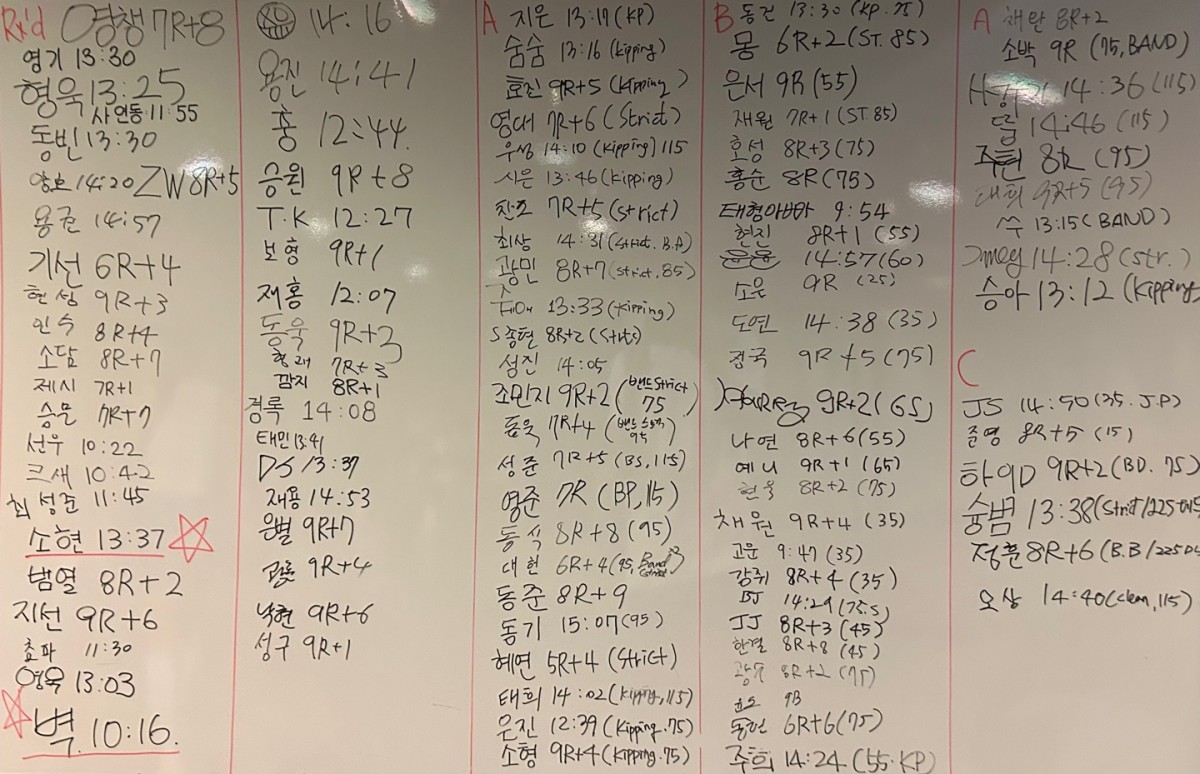 Rx'd 영챙 7R+8
영기 13:30
형욱 13:25
사연동 11:55
동빈 13:30
14:20 ZW 8R+5
용권 14:57
기선 6R+4
현상 9R+3
인수 8R+4
소담 8R+7
제시 7R+1
승물 7R+7
선우 10:22
크새 10:42
최성준 11:45
소현 13:37
범열 8R+2
지선 9R+6
초파 11:30
영욱 13:03
벽. 10:16.
14:16
용진 14:41
홍 12:44.
승원 9R+8
T.K 12:27
보형 9R+1
재홍 12:07
동욱 9R+3
형래 7R+3
깜지 8R+1
경록 14:08
태민 13:41
DS 13:37
재용 14:53
은별 9R+7
9R+4
낙현 9R+6
성구 9R+1
A 지은 13:17 (KP)
숨숨 13:16 (kipping)
효진 9R+5 (Kipping)
영대 7R+6 (Strict)
우성 14:10 (Kipping) 115
시은 13:46 (Kipping)
찬호 7R+5 (strict)
최상 14:31 (Strict. B.A)
광민 8R+7 (strict. 85)
13:33 (Kipping)
S종현 8R+2 (Strts)
성진 14:05
조민지 9R+2 (밴드strict 75)
동욱 7R+4 (밴드스트릭 95)
성준 7R+5 (BS, 115)
영준 7R (BP, 115)
동석 8R+8 (95)
대현 6R+4 (95, Band strict)
동준 8R+9
동기 15:07 (95)
혜연 5R+4 (Strict)
태희 14:02 (Kipping, 115)
은진 12:39 (Kipping. 75)
소형 9R+4 (Kipping. 75)
B 동건 13:30 (KP. 75)
뭉 6R+2 (ST. 85)
은서 9R (55)
재원 7R+1 (ST. 85)
호성 8R+3 (75)
홍순 8R (75)
태형아빠 9:54
현진 8R+1 (55)
14:57 (60)
소윤 9R (25)
도연 14:38 (35)
경국 9R+5 (75)
9R+2 (65)
나연 8R+6 (55)
예니 9R+1 (65)
현욱 8R+2 (75)
채원 9R+4 (35)
고운 9:47 (35)
강쥐 8R+4 (35)
BJ 14:29 (75.S)
JJ 8R+3 (45)
한결 8R+8 (45)
8R+2 (75)
윤호
6R+6 (75)
주희 14:24 (55. KP)
A 채완 8R+2
소박 9R (75, BAND)
14:36 (115)
14:46 (115)
8R (95)
대희 9R+5 (95)
쓰 13:15 (BAND)
Jmeg 14:28 (str.)
승아 13:12 (Kipping
C
JS 14:50 (35. J.P)
준영 8R+5 (15)
9R+2 (BD. 75)
숭범 13:38 (Strict/225
정훈 8R+6 (B.B/225
오상 14:40 (clean, 115)